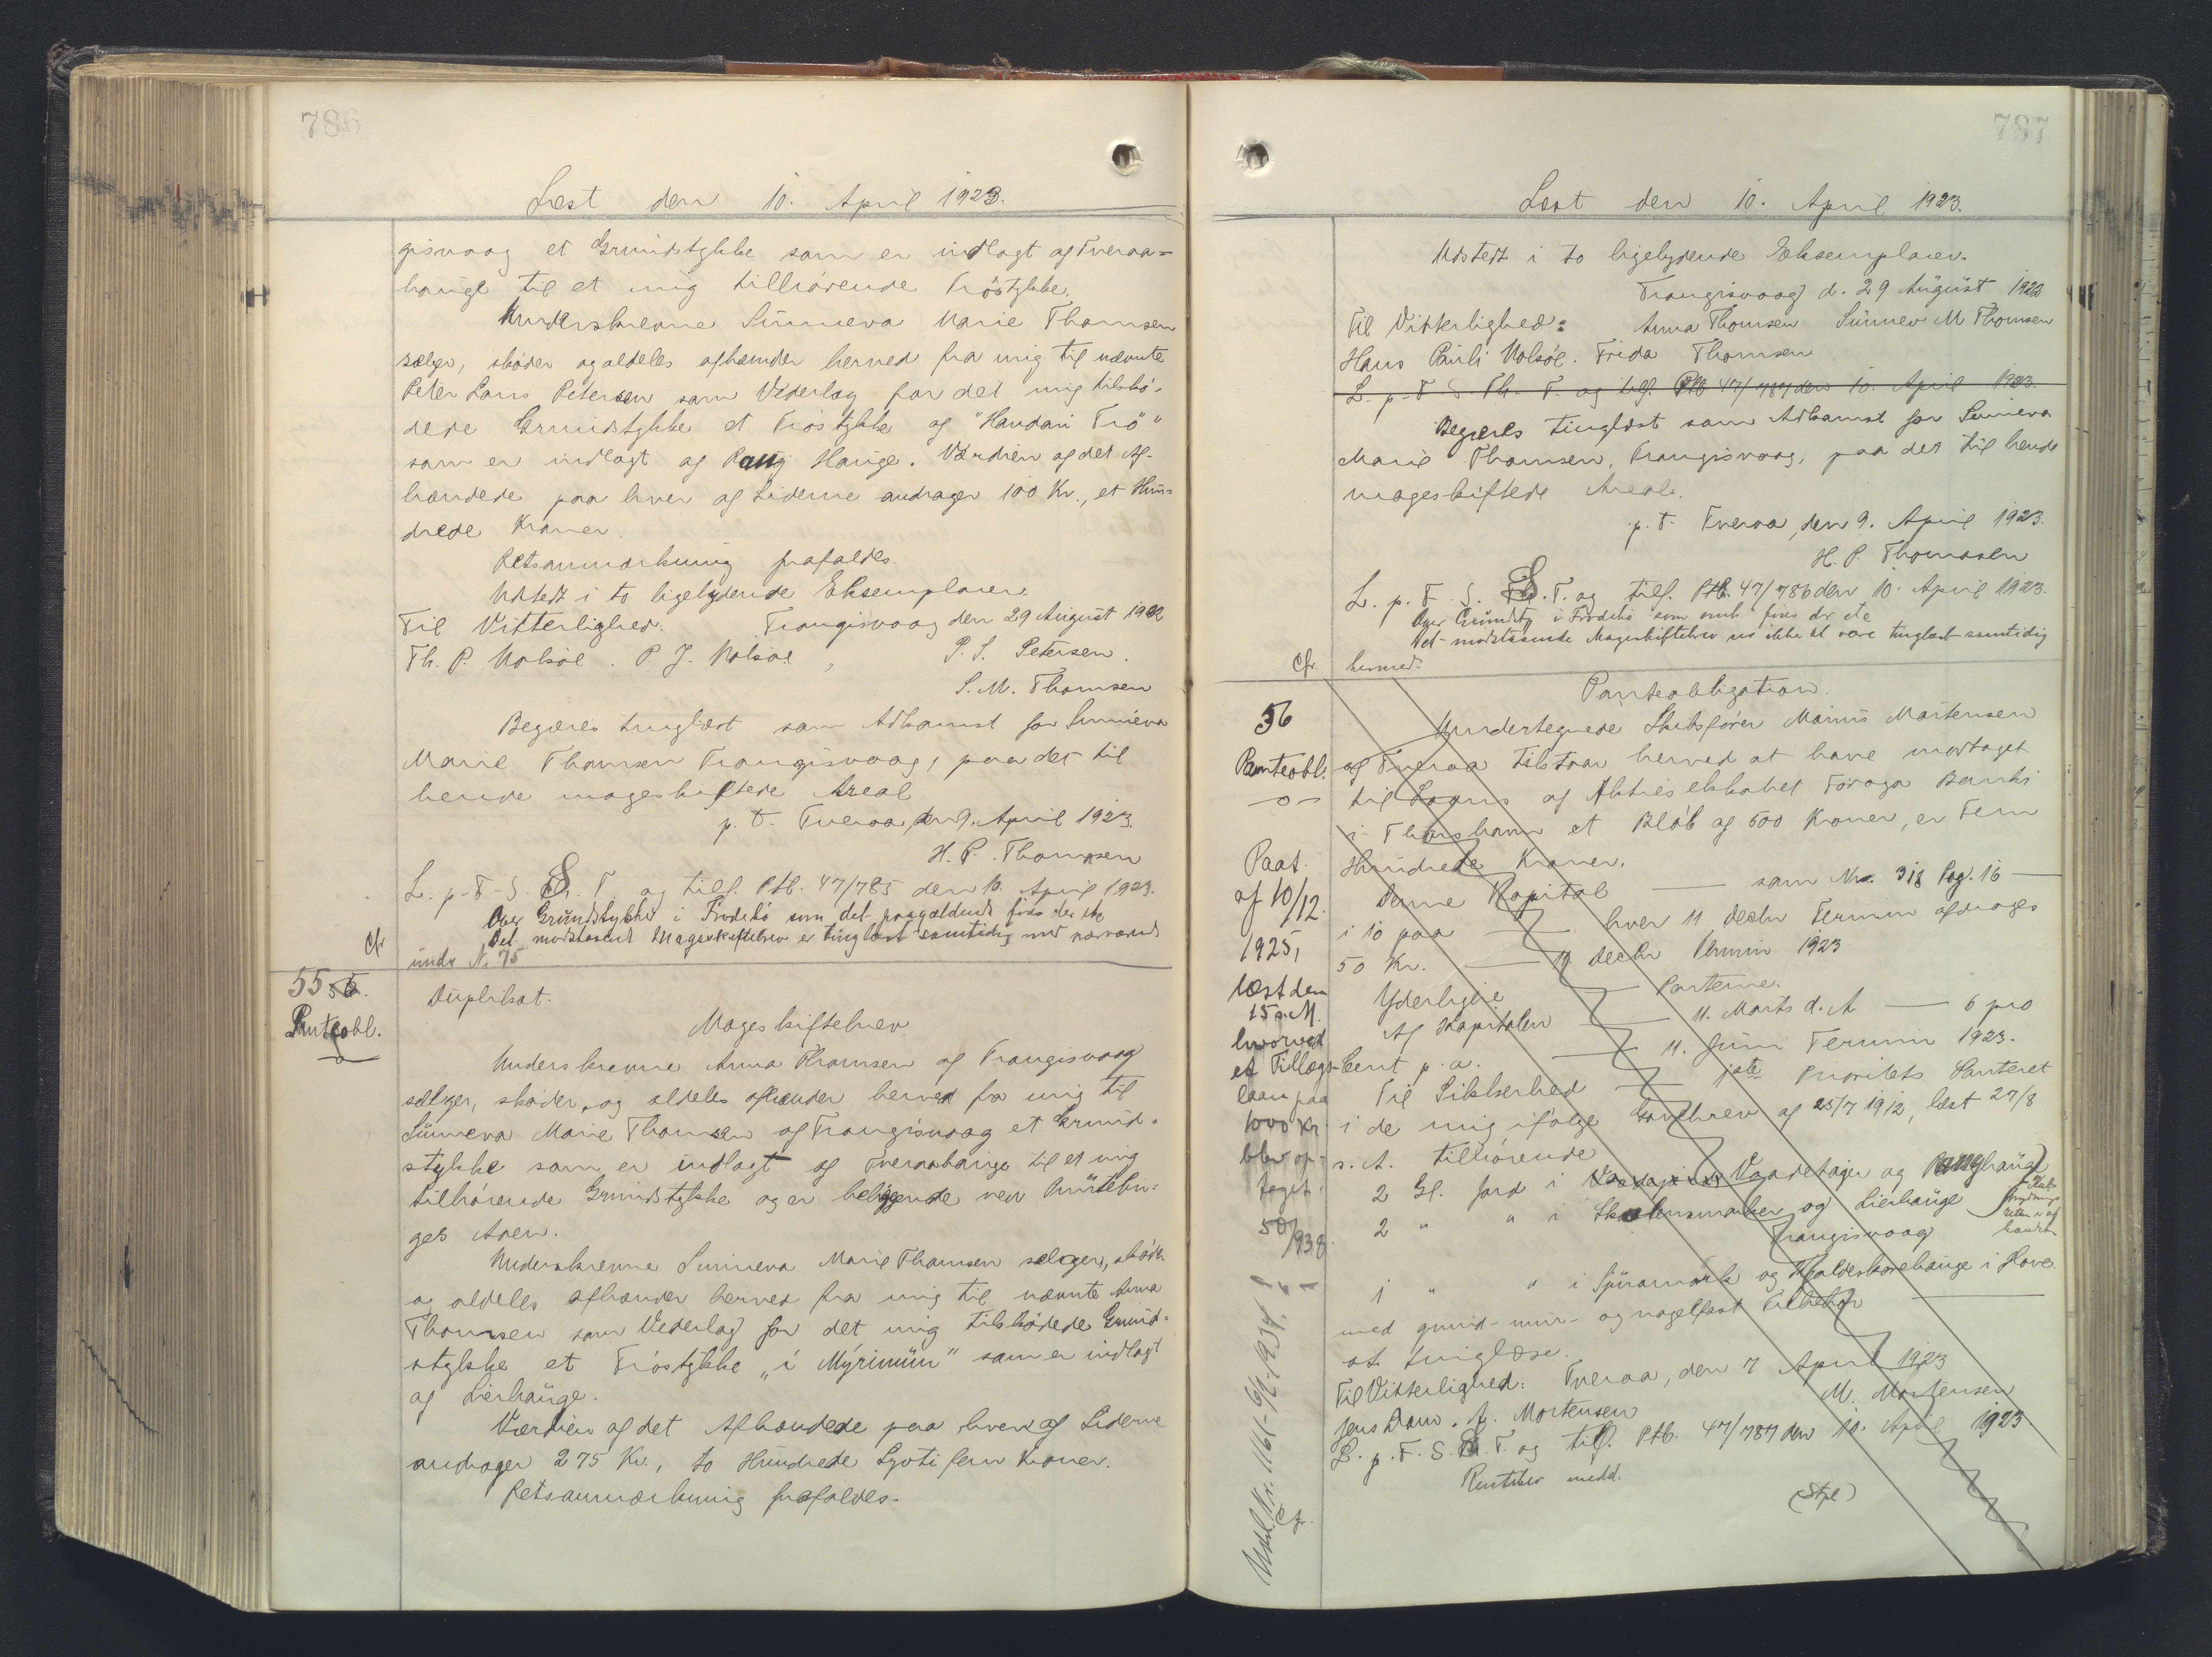 786
Læst den 10. April 1923.
gisvaag et Grundstykke som er indlagt af Tveraa-
hauge til et mig tilhørende Trøstykke.
Underskrevne Sunneva Marie Thomsen
sælger, skøder og aldeles afhænder herved fra mig til nævnte
Peter Lars Petersen som Vederlag for det mig tilskø-
dede Grundstykke et Trøstykke af "Handari Trö"
som er indlagt af Hauge. Værdien af det Af-
hændede paa hver af Siderne andrager 100 Kr., et Hun-
drede Kroner.
Retsanmærkning frafaldes.
Udstedt i to ligelydende Eksemplarer.
Til Vitterlighed. Trangisvaag den 29 August 1922
Th. P. Nolsøe. P. J. Nolsøe, P. L. Petersen.
S. M. Thomsen
Begæres tinglæst som Adkomst for Sunneva
Marie Thomsen Trangisvaag, paa det til
hende mageskiftede Areal
p. t. Tveraa, den 9. April 1923.
H. P. Thomsen
L. p. F. S. T. og tilf. Ptb. 47/785 den 10. April 1923.
Over Grundstykker i Frodebø som det paagældende findes der ikke
Det modstaaende Mageskiftebrev er tinglæst samtidig med nærværende
Cfr under No 75
55
Panteobl.
Duplikat.
Mageskiftebrev.
Underskrevne Anna Thomsen af Trangisvaag
sælger, skøder, og aldeles afhænder herved fra mig til
Sunneva Marie Thomsen af Trangisvaag et Grund-
stykke som er indlagt af Tveraahauge til et mig
tilhørende Grundstykke og er beliggende ved
ges Aaen.
Underskrevne Sunneva Marie Thomsen sælger, skøder
og aldeles afhænder herved fra mig til nævnte Anna
Thomsen som Vederlag for det mig tilskødede Grund-
stykke et Trøstykke "i Mýrinum" som er indlagt
af Lierhauge.
Værdien af det Afhændede paa hver af Siderne
andrager 275 Kr., to Hundrede Syvti fem Kroner.
Retsanmærkning frafaldes.
787
Læst den 10. April 1923.
Udstedt i to ligelydende Eksemplarer.
Trangisvaag d. 29 August 1922
Til Vitterlighed: Anna Thomsen Sunnev M Thomsen
Hans Pauli Nolsøe. Frida Thomsen
L. p. F. S. Th. T. og tilf. Ptb 47/787 den 10. April 1923.
Begæres tinglæst som Adkomst for Sunneva
Marie Thomsen, Trangisvaag, paa det til hende
mageskiftede Areal.
p. t. Tveraa, den 9. April 1923.
H. P. Thomassen
L. p. F. S. T. og tilf. Ptb. 47/786 den 10. April 1923.
Over Grundst i Frodebø som omh. findes der ikke
Det modstaaende Mageskiftebrev ses ikke at være tinglæst samtidig
Cfr. hermed.
56
Panteobl.
Panteobligation.
Undertegnede Skibsfører Mortensen
af Tveraa tilstaar herved at have modtaget
til Laans af Aktieselskabet Føroya Banki
i Thorshavn et Beløb af 500 Kroner, er Fem
Hundrede Kroner.
Denne Kapital — som No. 318 Pag. 16 —
i 10 paa — hver 11 Decbr Termin afdrages
50 Kr. — 11 Decbr Termin 1923
Yderligere — Parterne.
Af Kapitalen — 11. Marts d. A — 6 pro
Cent p. a. — 11. Juni Termin 1923.
Til Sikkerhed — 1ste Prioritets Panteret
i de mig ifølge Gavebrev af 25/7 1912, læst 27/8
s. A. tilhørende
2 Gl. Jord i Vaadehajer og
2 " " i Skalensmarker og Lierhauge
Trangisvaag
1 " " i og i Hove
med grund- mur- og nagelfast Tilbehør —
at tinglæse.
Til Vitterlighed: Tveraa, den 7 April 1923
Jens Dam. J. Mortensen M. Mortensen
L. p. F. S. T. og tilf. Ptb. 47/787 den 10. April 1923
(Stpl)
Paat.
af 10/12
1925,
læst den
15 s. M.
hvorved
et Tillægs-
laan paa
1000 Kr
blev op-
taget.
50/938
Cfr.